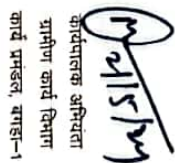 21/5/24
कार्यपालक अभियंता
ग्रामीण कार्य विभाग
कार्य प्रमंडल, बगहा-1